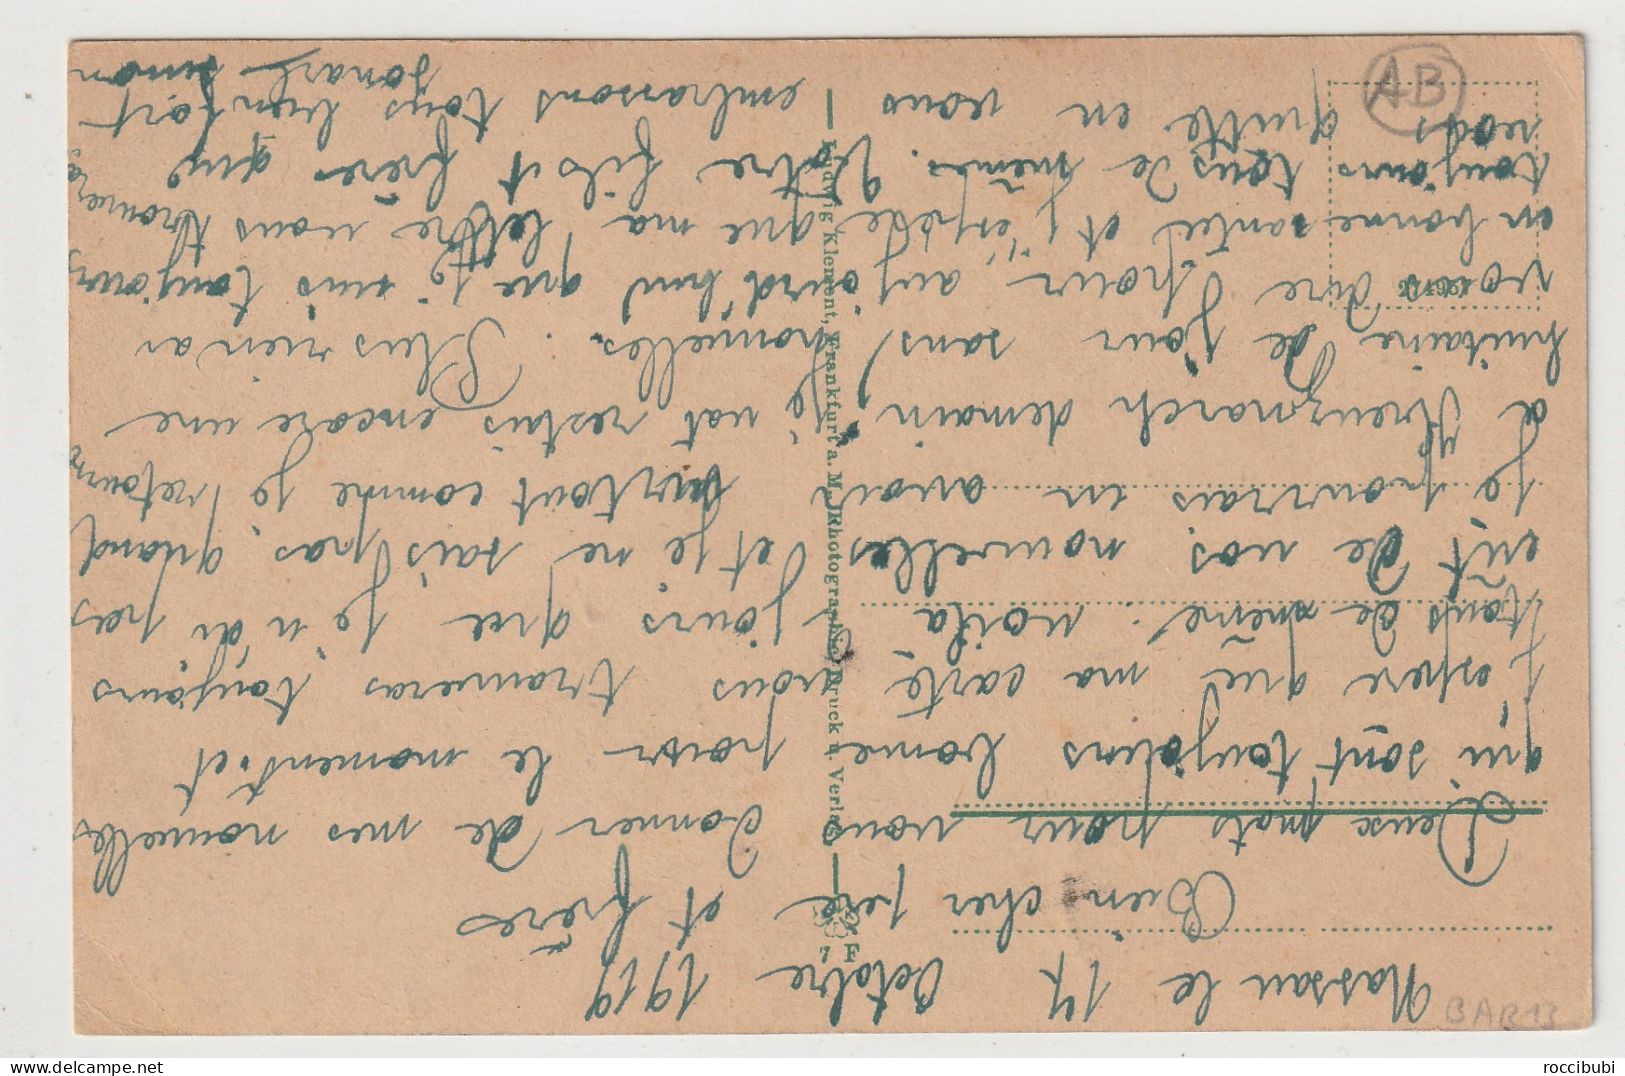 Nassau le 17 Octobre 1919
Bien cher père et frères
Deux mots pour vous donner de mes nouvelles
qui sont toujours bonne pour le moment et
j'espere que ma carte vous trouveras toujours
tous de même. voila jours que je n'ai pas
eût de vos nouvelles et je ne sais pas quand
je pourrais en avoir surtout comme je retourn
a Kreuznach demain, je vat restais encore une
huitaine de jour sans nouvelles. Plus rien a
vous dire pour aujourd'hui que je suis toujours
en bonne santée et j'espère que ma lettre vous trouveras
toujours tous de même. Votre fils et frère qui
vous quitte en vous embrassons tous bien fort
Simon
Ludwig Klement, Frankfurt a. M. Photograph. Druck u. Verlag
7 F
AB
BAR13
roccibubi